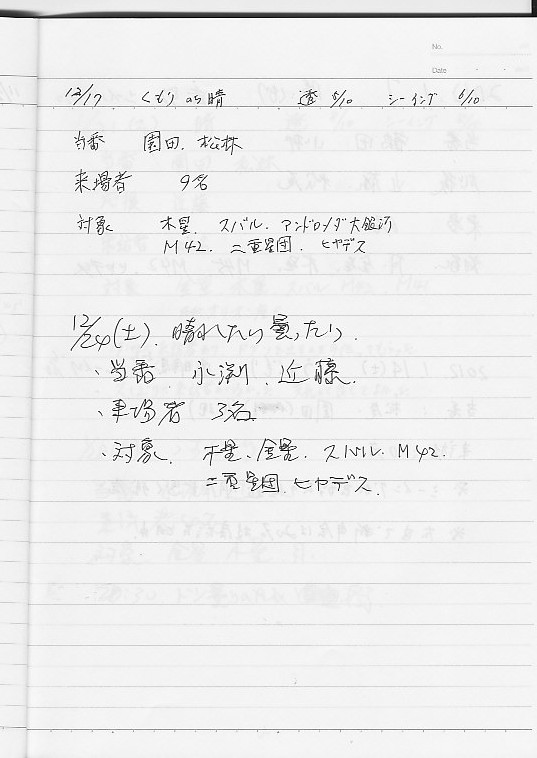 No.
Date
12/17 くもり os 晴 透 5/10 シーイング 6/10
当番 園田、松林
来場者 9名
対象 木星、スバル、アンドロメダ大銀河
M42、二重星団、ヒヤデス
12/24(土)、晴れたり曇ったり、
・当番 永渕、近藤、
・来場者 3名
・対象、木星、金星、スバル、M42、
二重星団、ヒヤデス、